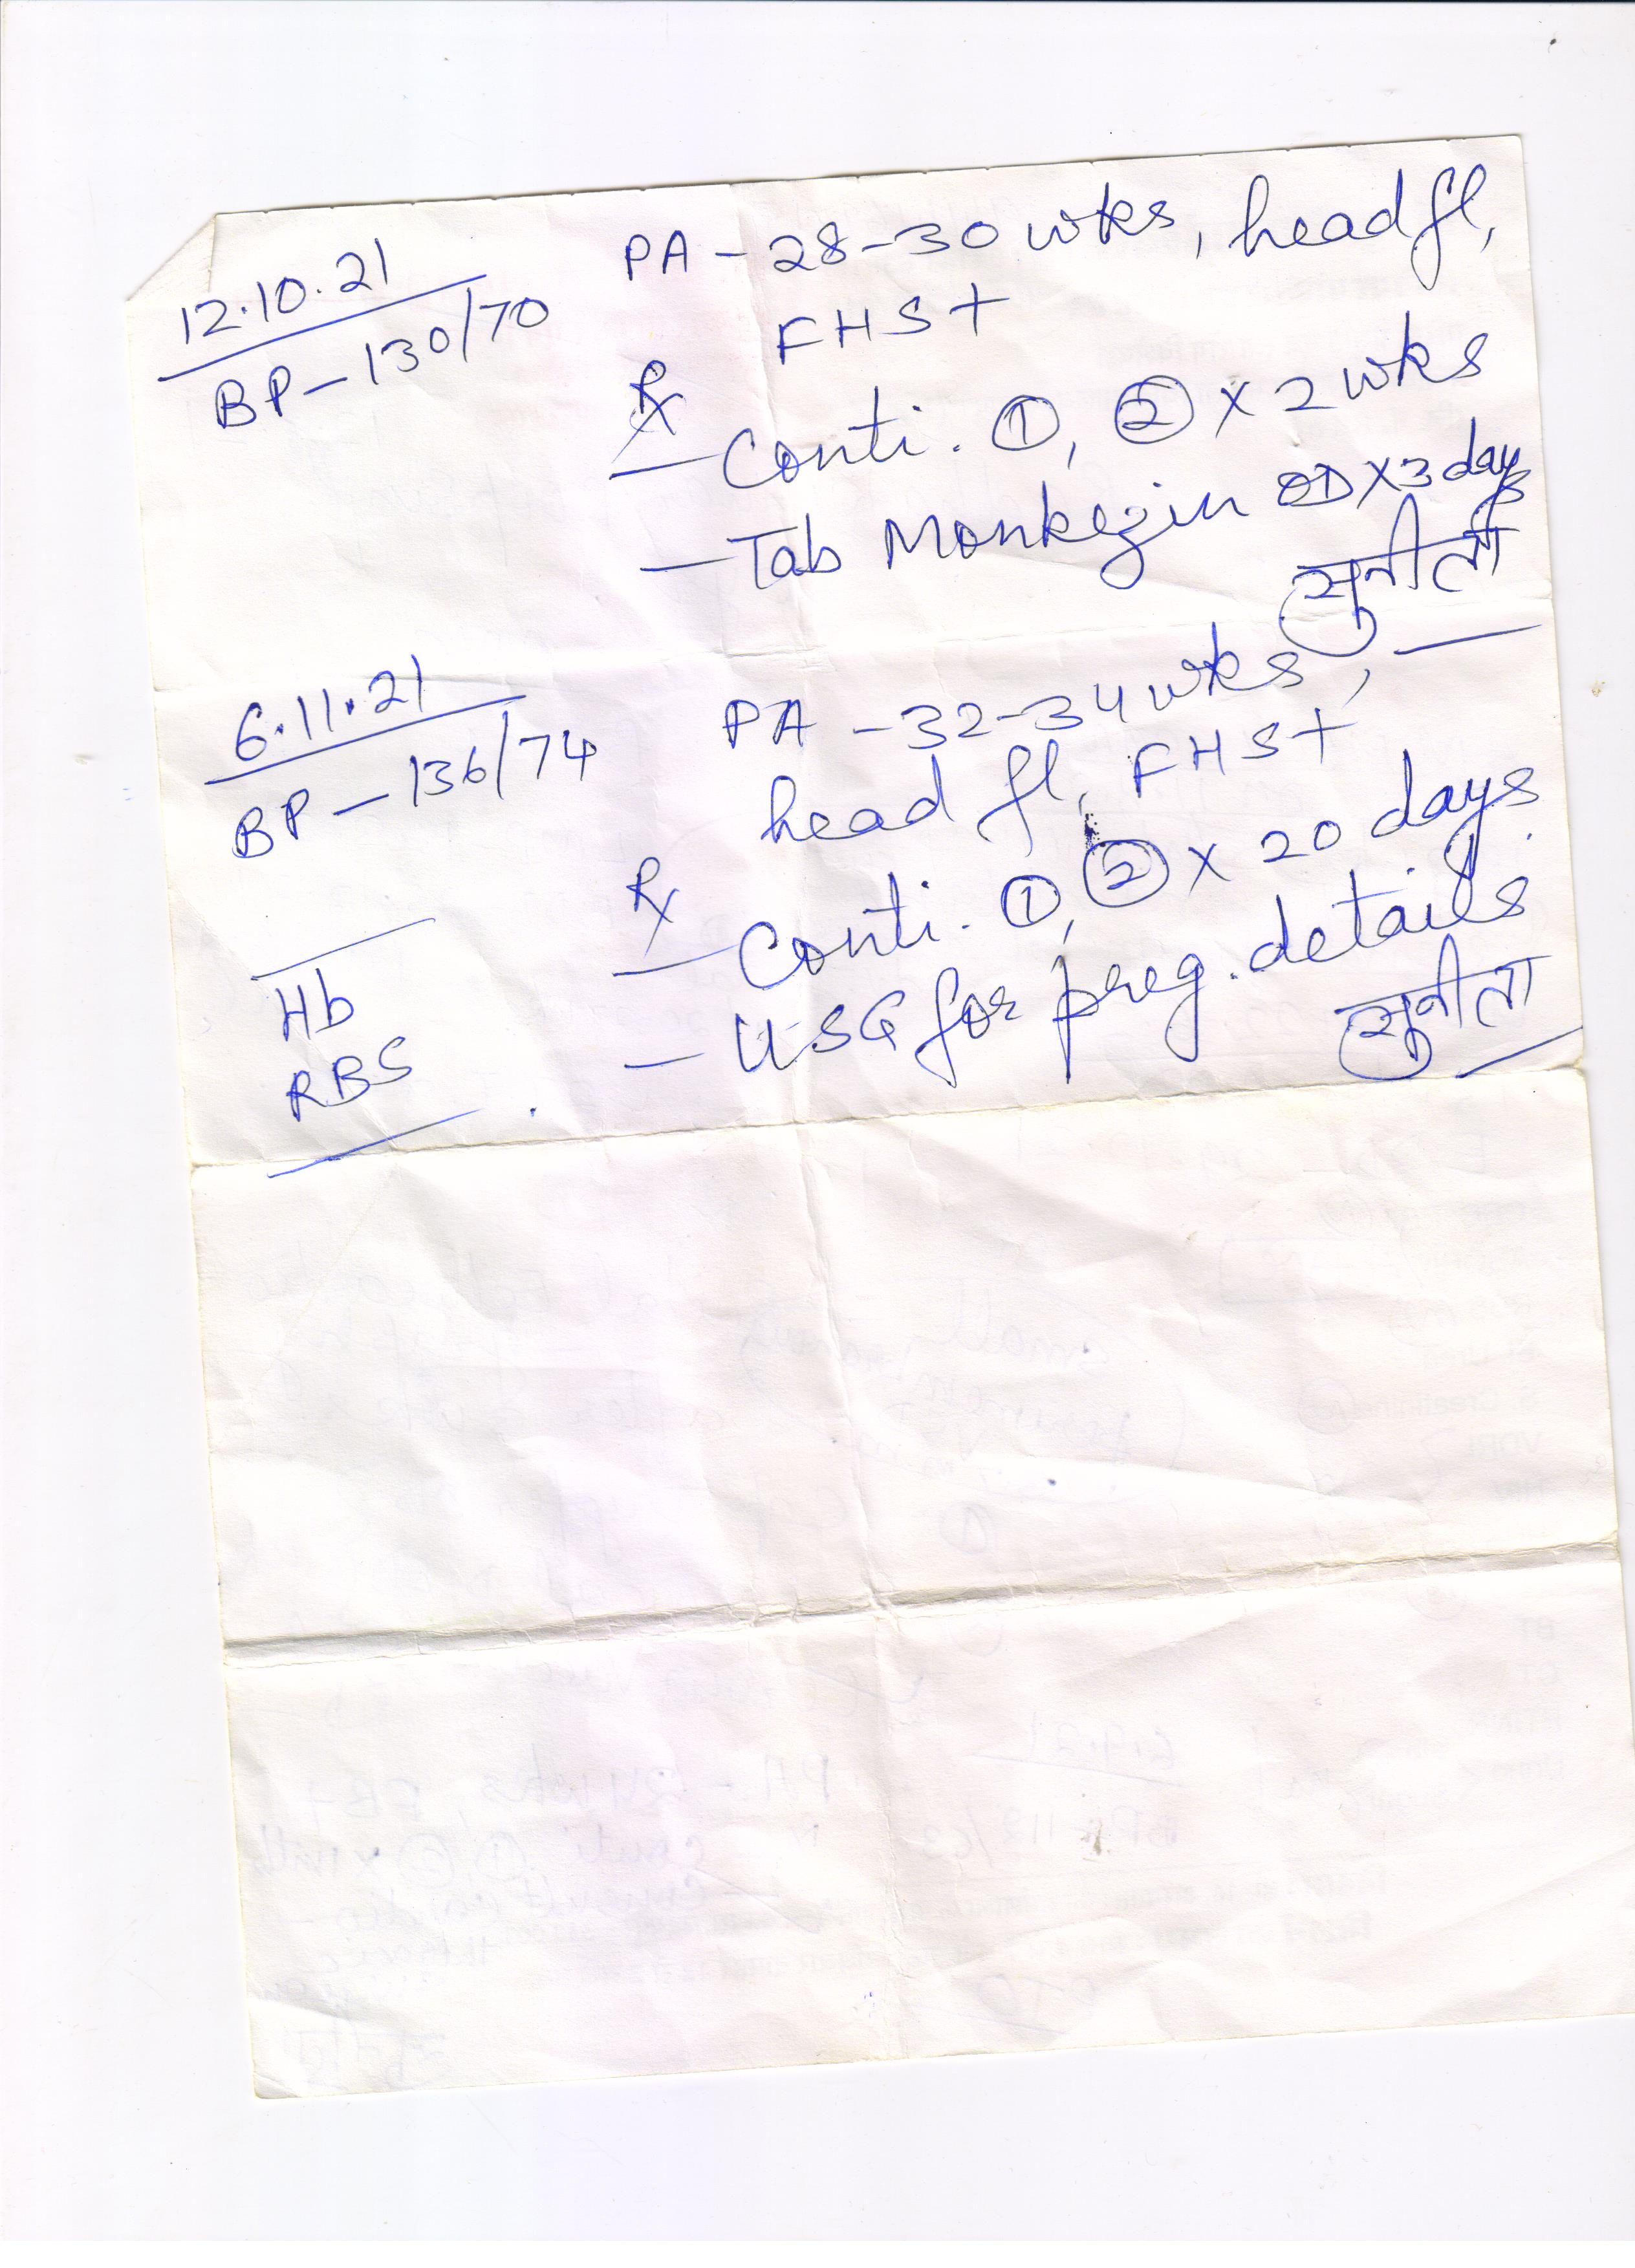 12.10.21
BP - 130/70
PA - 28-30 wks, head fl,
FHS+
Rx
- Conti. ①, ② x 2 wks
- Tab Monkezin OD x 3 days
सुनीता
6.11.21
BP - 136/74
PA - 32-34 wks,
head fl, FHS+
Rx
- Conti. ①, ② x 20 days
- USG for preg. details
सुनीता
Hb
RBS